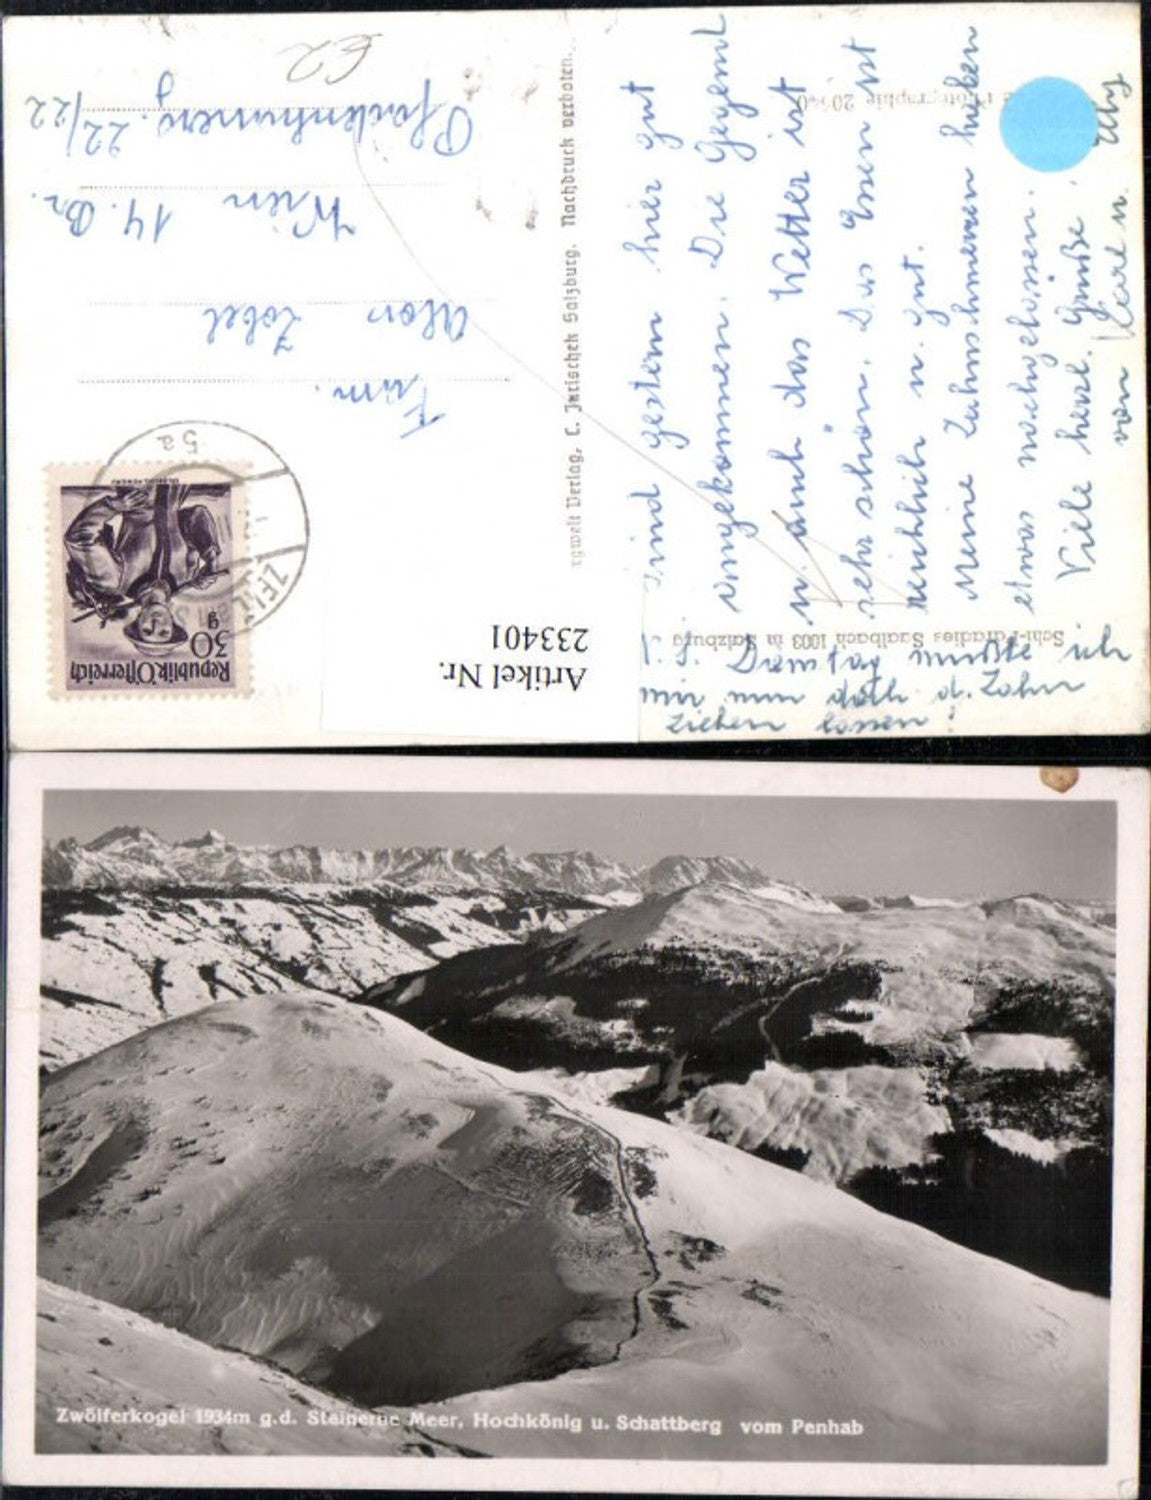 Sind gestern hier gut
angekommen. Die Gegend
u. auch das Wetter ist
sehr schön. Das Essen ist
reichlich u. gut.
Meine Zahnschmerzen haben
etwas nachgelassen.
Viele herzl. Grüße
von Karl u.
P.S. Dienstag mußte ich
mir nun doch d. Zahn
ziehen lassen!
Fam.
Alon Zobel
Wien 14. Br.
22/22
€2
Schi-Paradies Saalbach 1003 m Salzburg
Verlag, C. Jurischek Salzburg. Nachdruck verboten.
Photographie
Republik Österreich
30
g
5a
Artikel Nr.
233401
Zwölferkogel 1934m g.d. Steinerne Meer, Hochkönig u. Schattberg vom Penhab